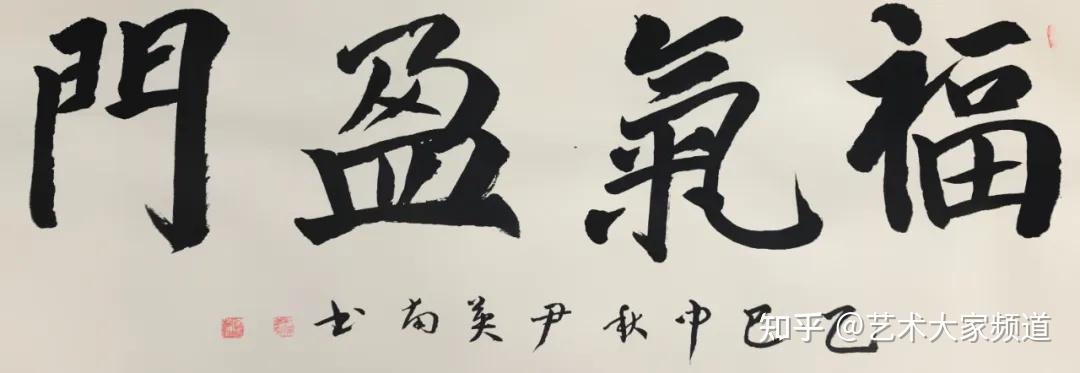 福氣盈門
乙巳中秋尹英南书
知乎 @艺术大家频道